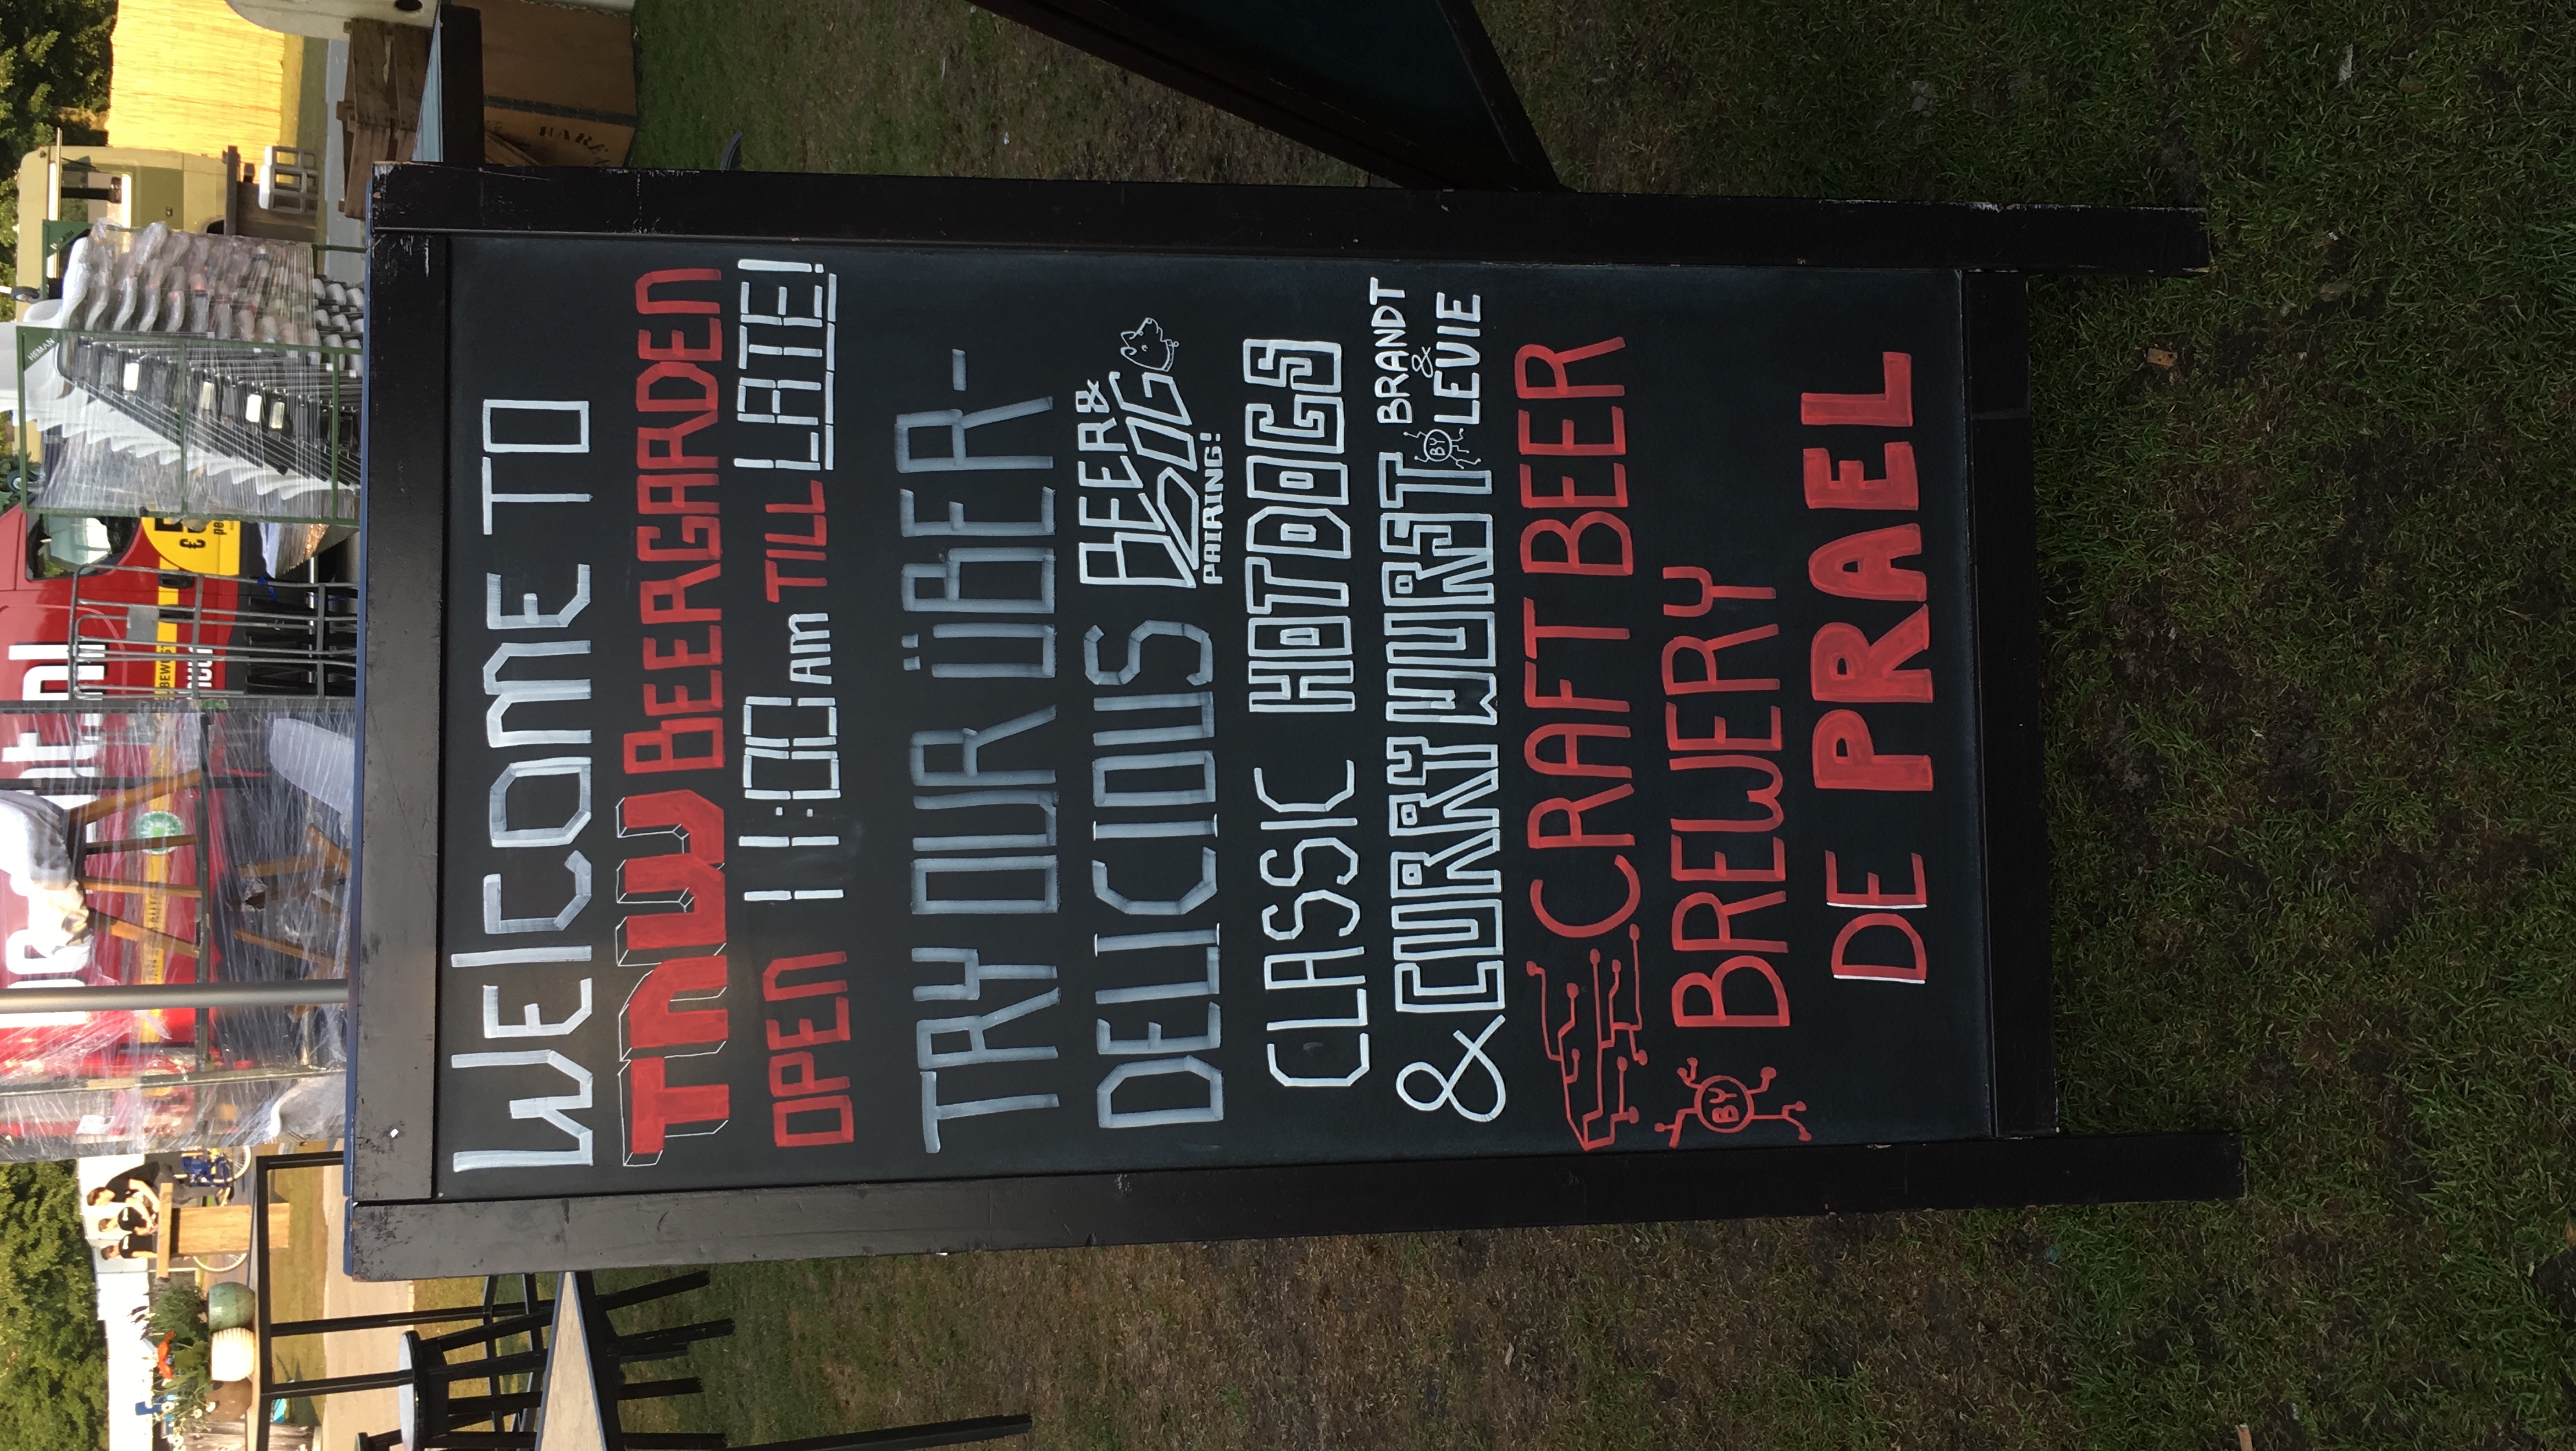 WELCOME TO
TNW BEERGARDEN
OPEN 11:00 AM TILL LATE!
TRY OUR ÜBER-
DELICIOUS BEER& DOG PAIRING!
CLASSIC HOTDOGS
& CURRYWURST BY BRANDT & LEVIE
CRAFT BEER
BY BREWERY
DE PRAEL
HEMAN